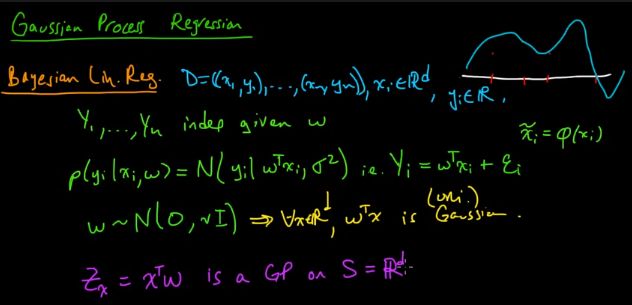 Gaussian Process Regression
Bayesian Lin. Reg. D=((x₁,y₁),...,(xₙ,yₙ)), xᵢ∈ℝᵈ, yᵢ∈ℝ.
Y₁,...,Yₙ indep given w
x̃ᵢ = φ(xᵢ)
p(yᵢ|xᵢ,w) = N(yᵢ|wᵀxᵢ,σ²) i.e. Yᵢ = wᵀxᵢ + εᵢ
w ~ N(0,γI) ⇒ ∀x∈ℝᵈ, wᵀx is (uni.) Gaussian.
Zₓ = xᵀw is a GP on S = ℝᵈ